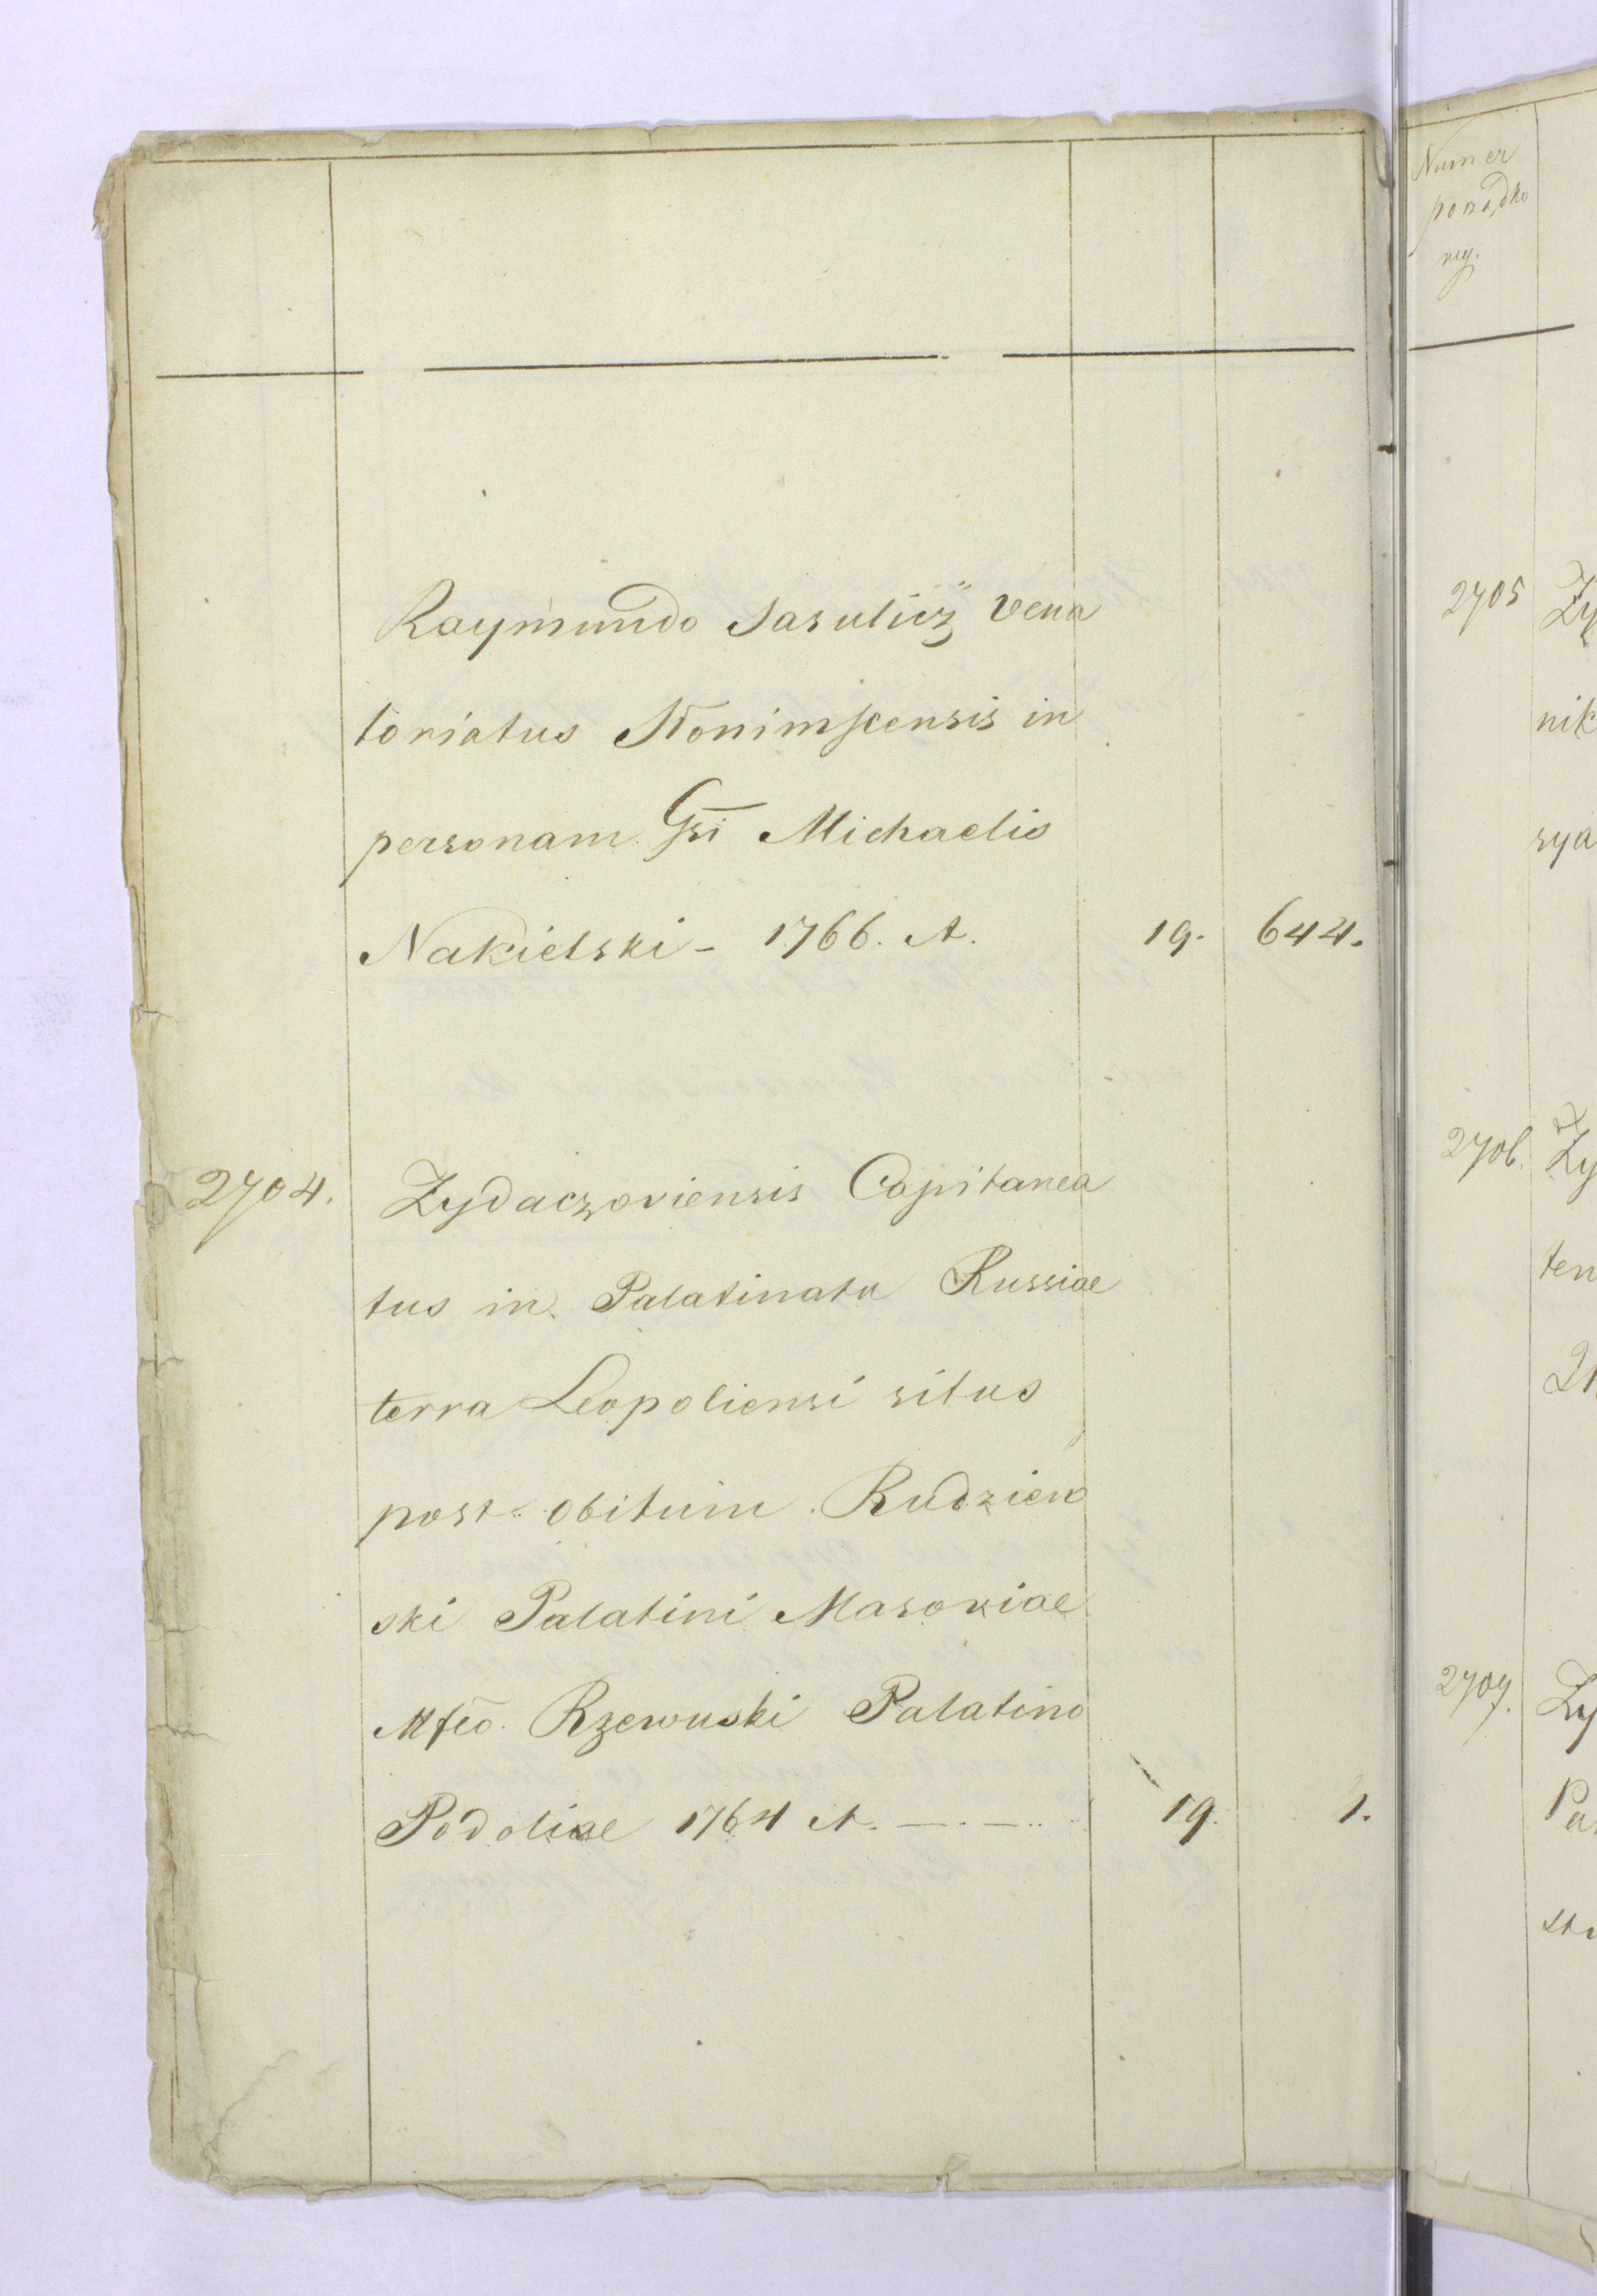 Raymundo Sasulicz vena
toriatus Słonimscensis in
personam Gsi Michaelis
Nakielski - 1766. A. 19. 644.
2704. Zydaczoviensis Capitanea
tus in Palatinatu Russiae
terra Leopoliensi situs
post obitum Rudzien
ski Palatini Masoviae
Mfco. Rzewuski Palatino
Podoliae 1764 A. 19. 1.
Numer
porządko
2705 Zy
nik
sya
2706. Zy
ten
2707. Zy
Pa